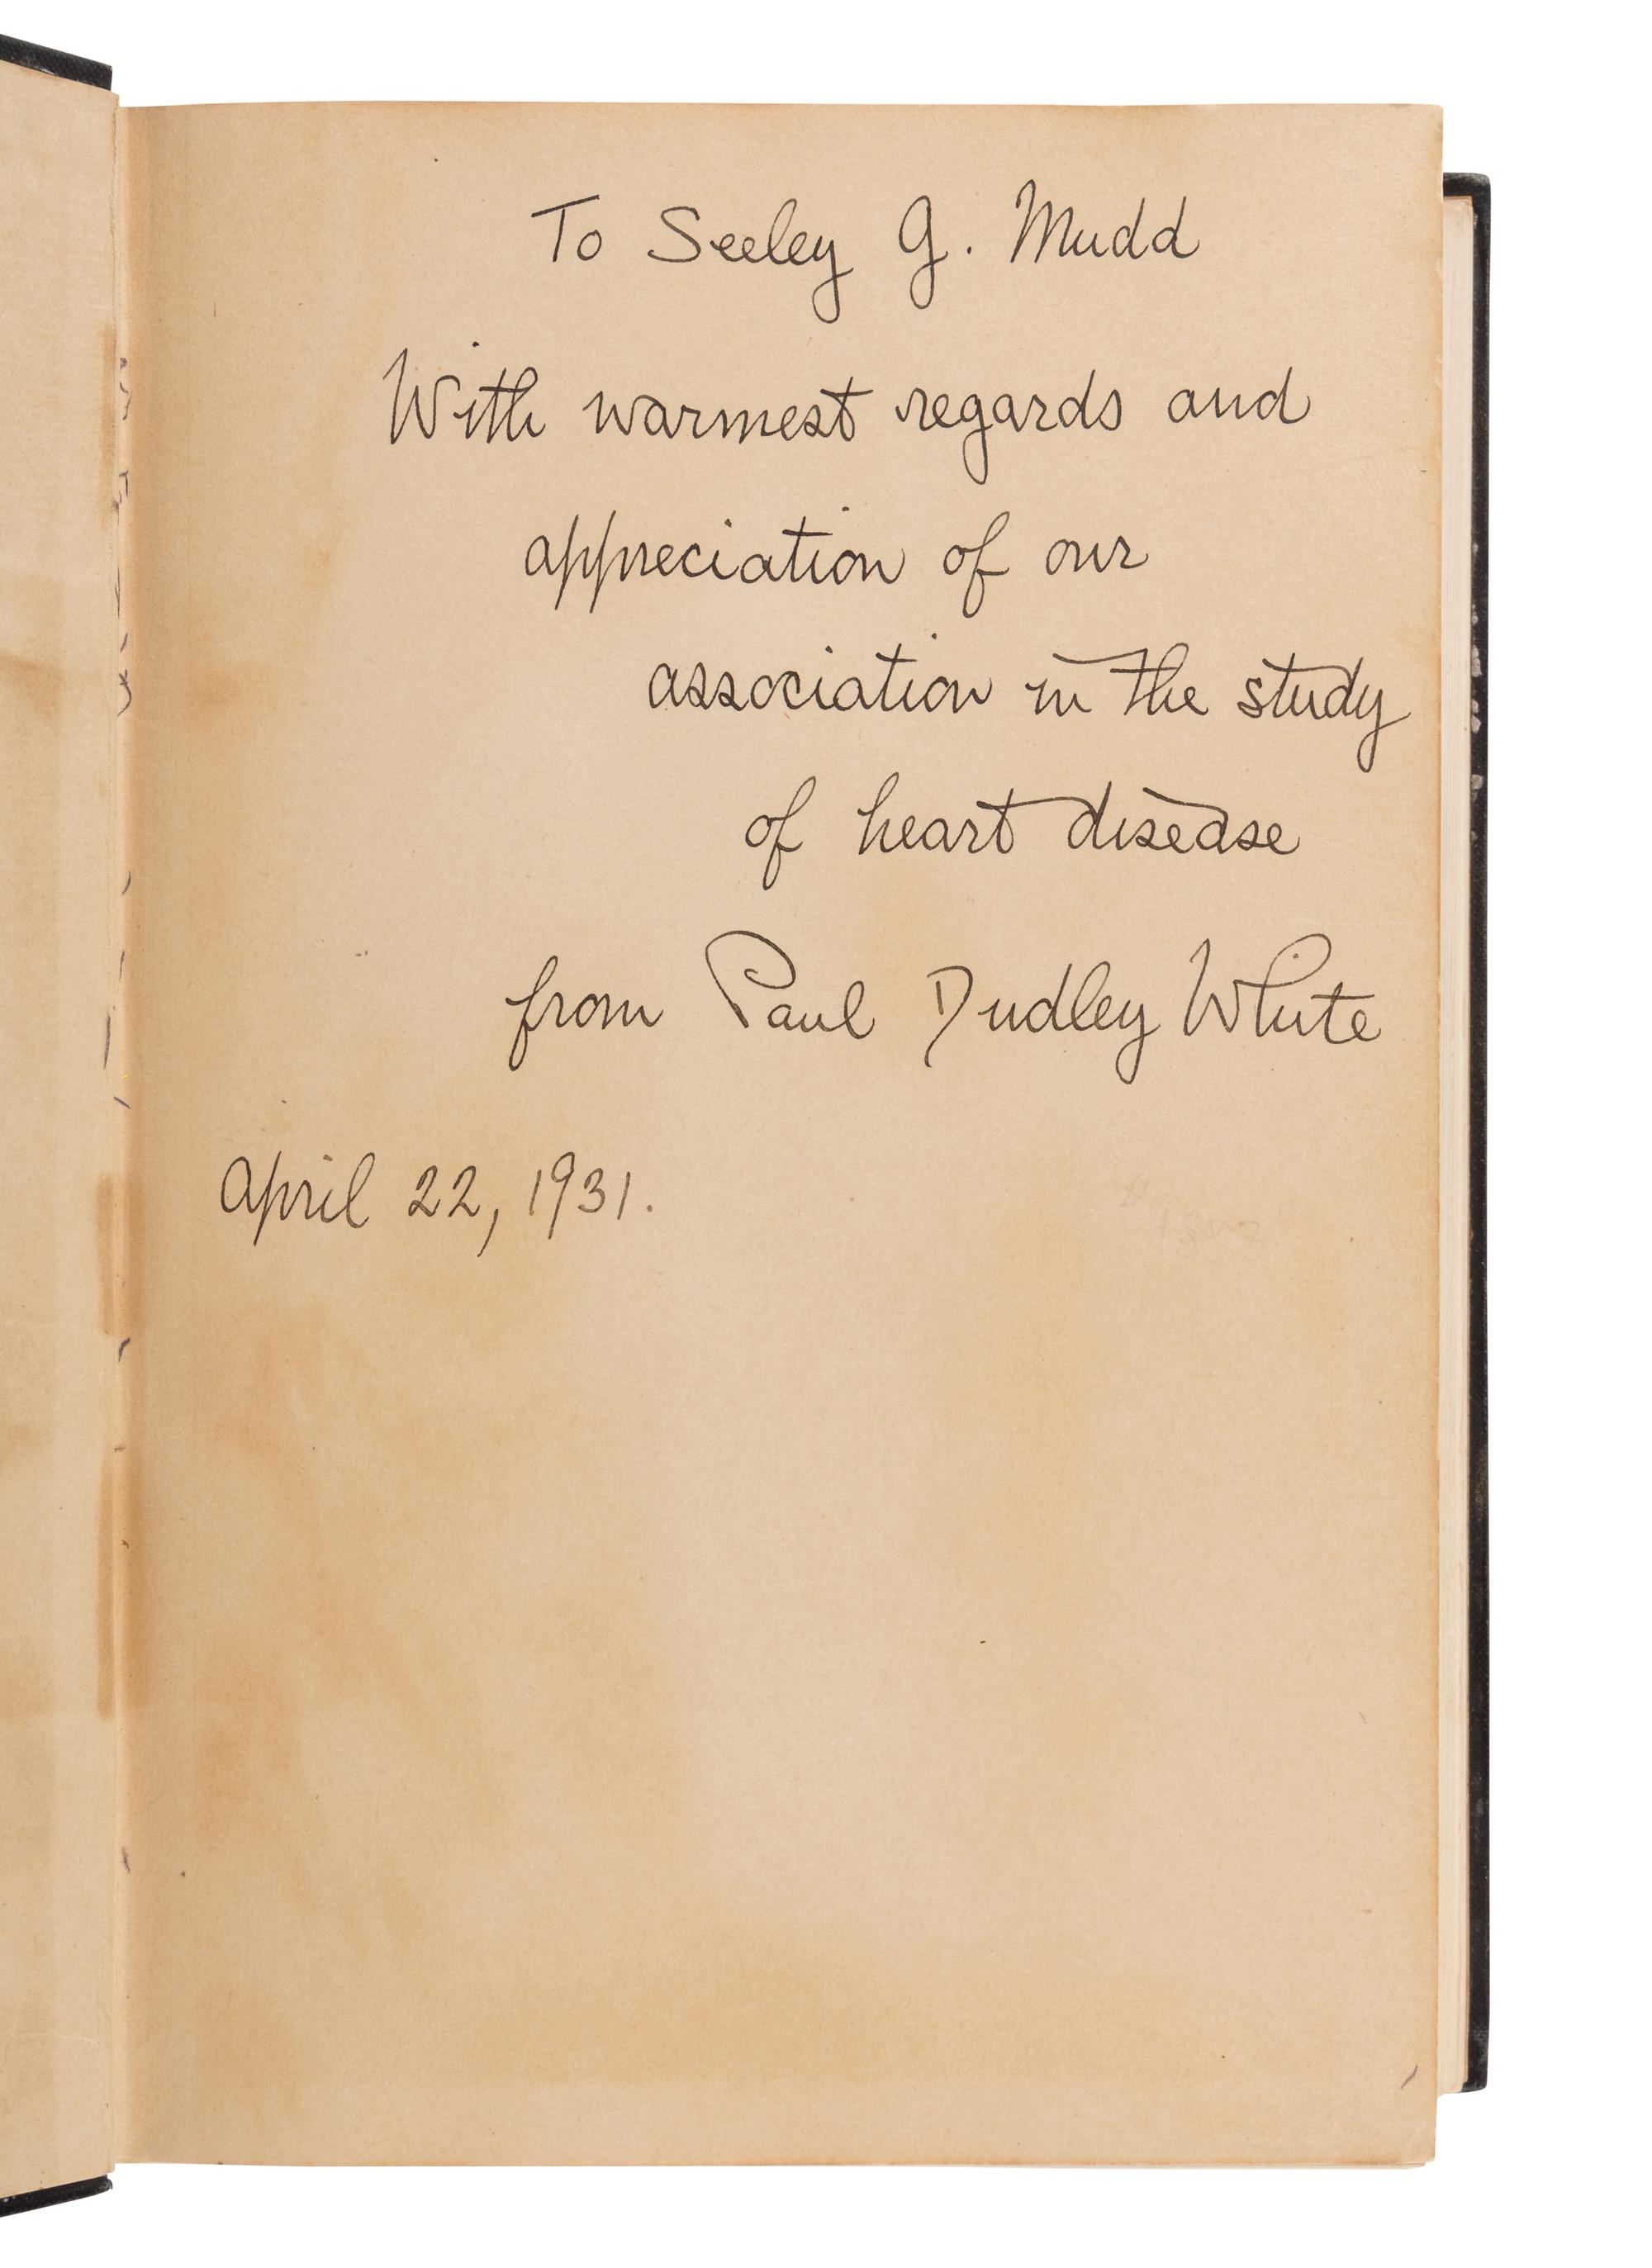 To Seeley G. Mudd
With warmest regards and
appreciation of our
association in the study
of heart disease
from Paul Dudley White
April 22, 1931.